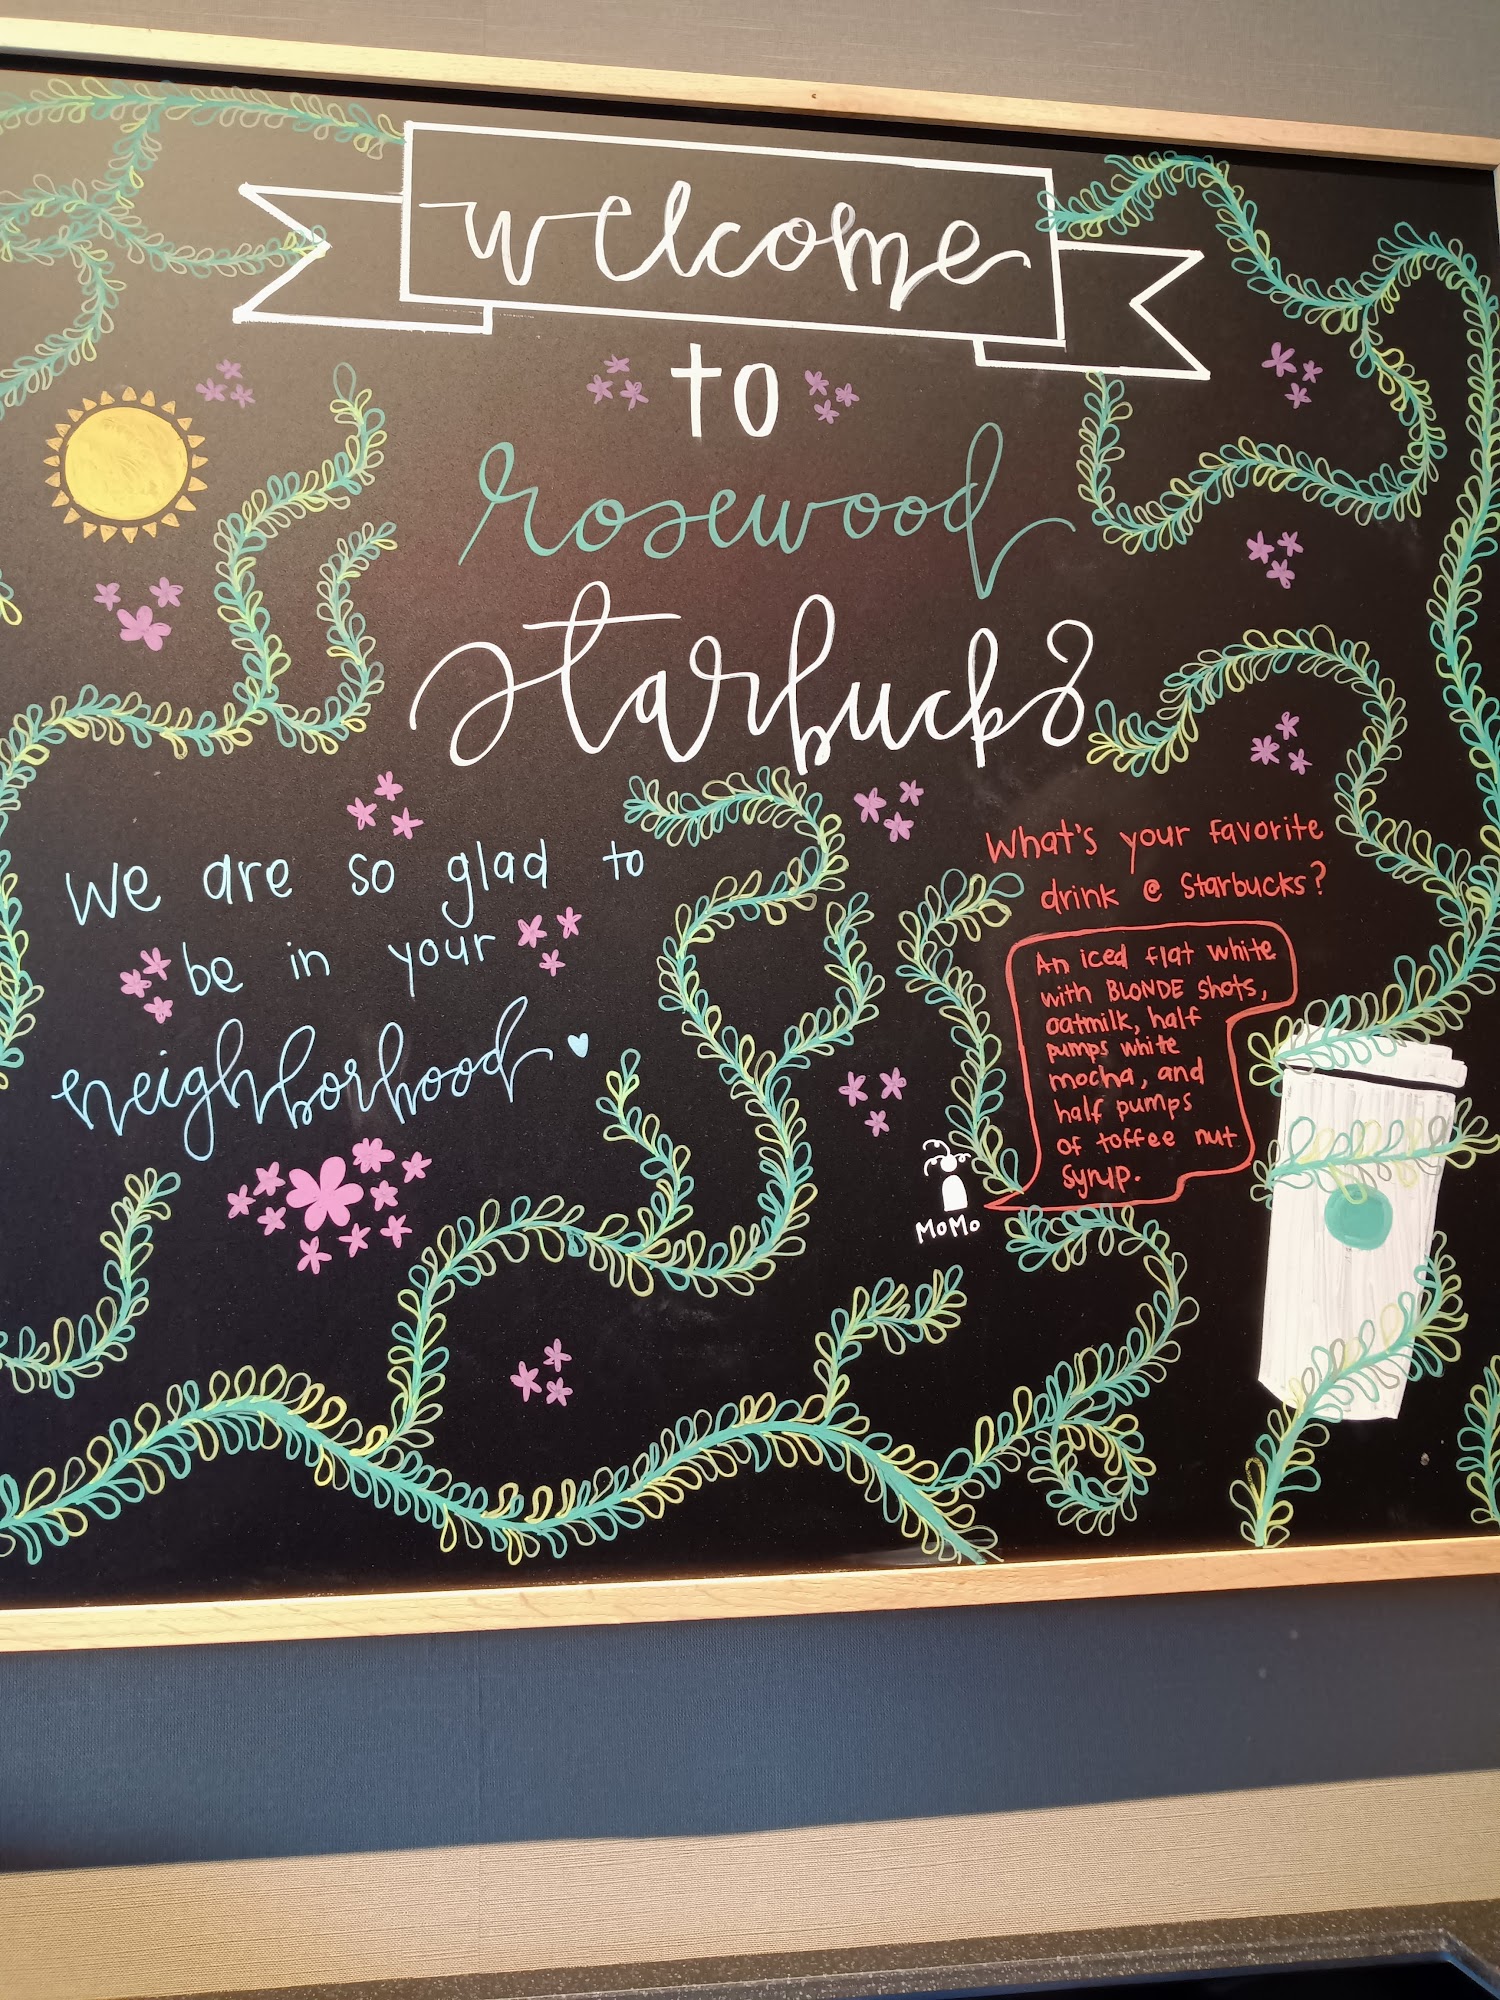 welcome
to
rosewood
starbucks
We are so glad to
be in your
neighborhood
What's your favorite
drink @ Starbucks?
An iced flat white
with BLONDE shots,
oatmilk, half
pumps white
mocha, and
half pumps
of toffee nut
syrup.
MoMo